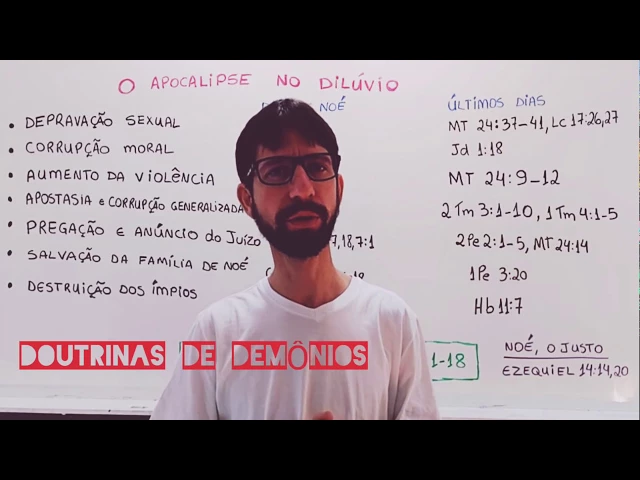 O APOCALIPSE NO DILÚVIO
NOÉ
ÚLTIMOS DIAS
• DEPRAVAÇÃO SEXUAL
MT 24:37-41, LC 17:26,27
• CORRUPÇÃO MORAL
Jd 1:18
• AUMENTO DA VIOLÊNCIA
MT 24:9-12
• APOSTASIA E CORRUPÇÃO GENERALIZADA
2Tm 3:1-10, 1Tm 4:1-5
• PREGAÇÃO E ANÚNCIO do Juízo
7,18,7:1
2Pe 2:1-5, MT 24:14
• SALVAÇÃO DA FAMÍLIA DE NOÉ
18
1Pe 3:20
• DESTRUIÇÃO DOS ÍMPIOS
Hb 11:7
DOUTRINAS DE DEMÔNIOS
1-18
NOÉ, O JUSTO
EZEQUIEL 14:14,20